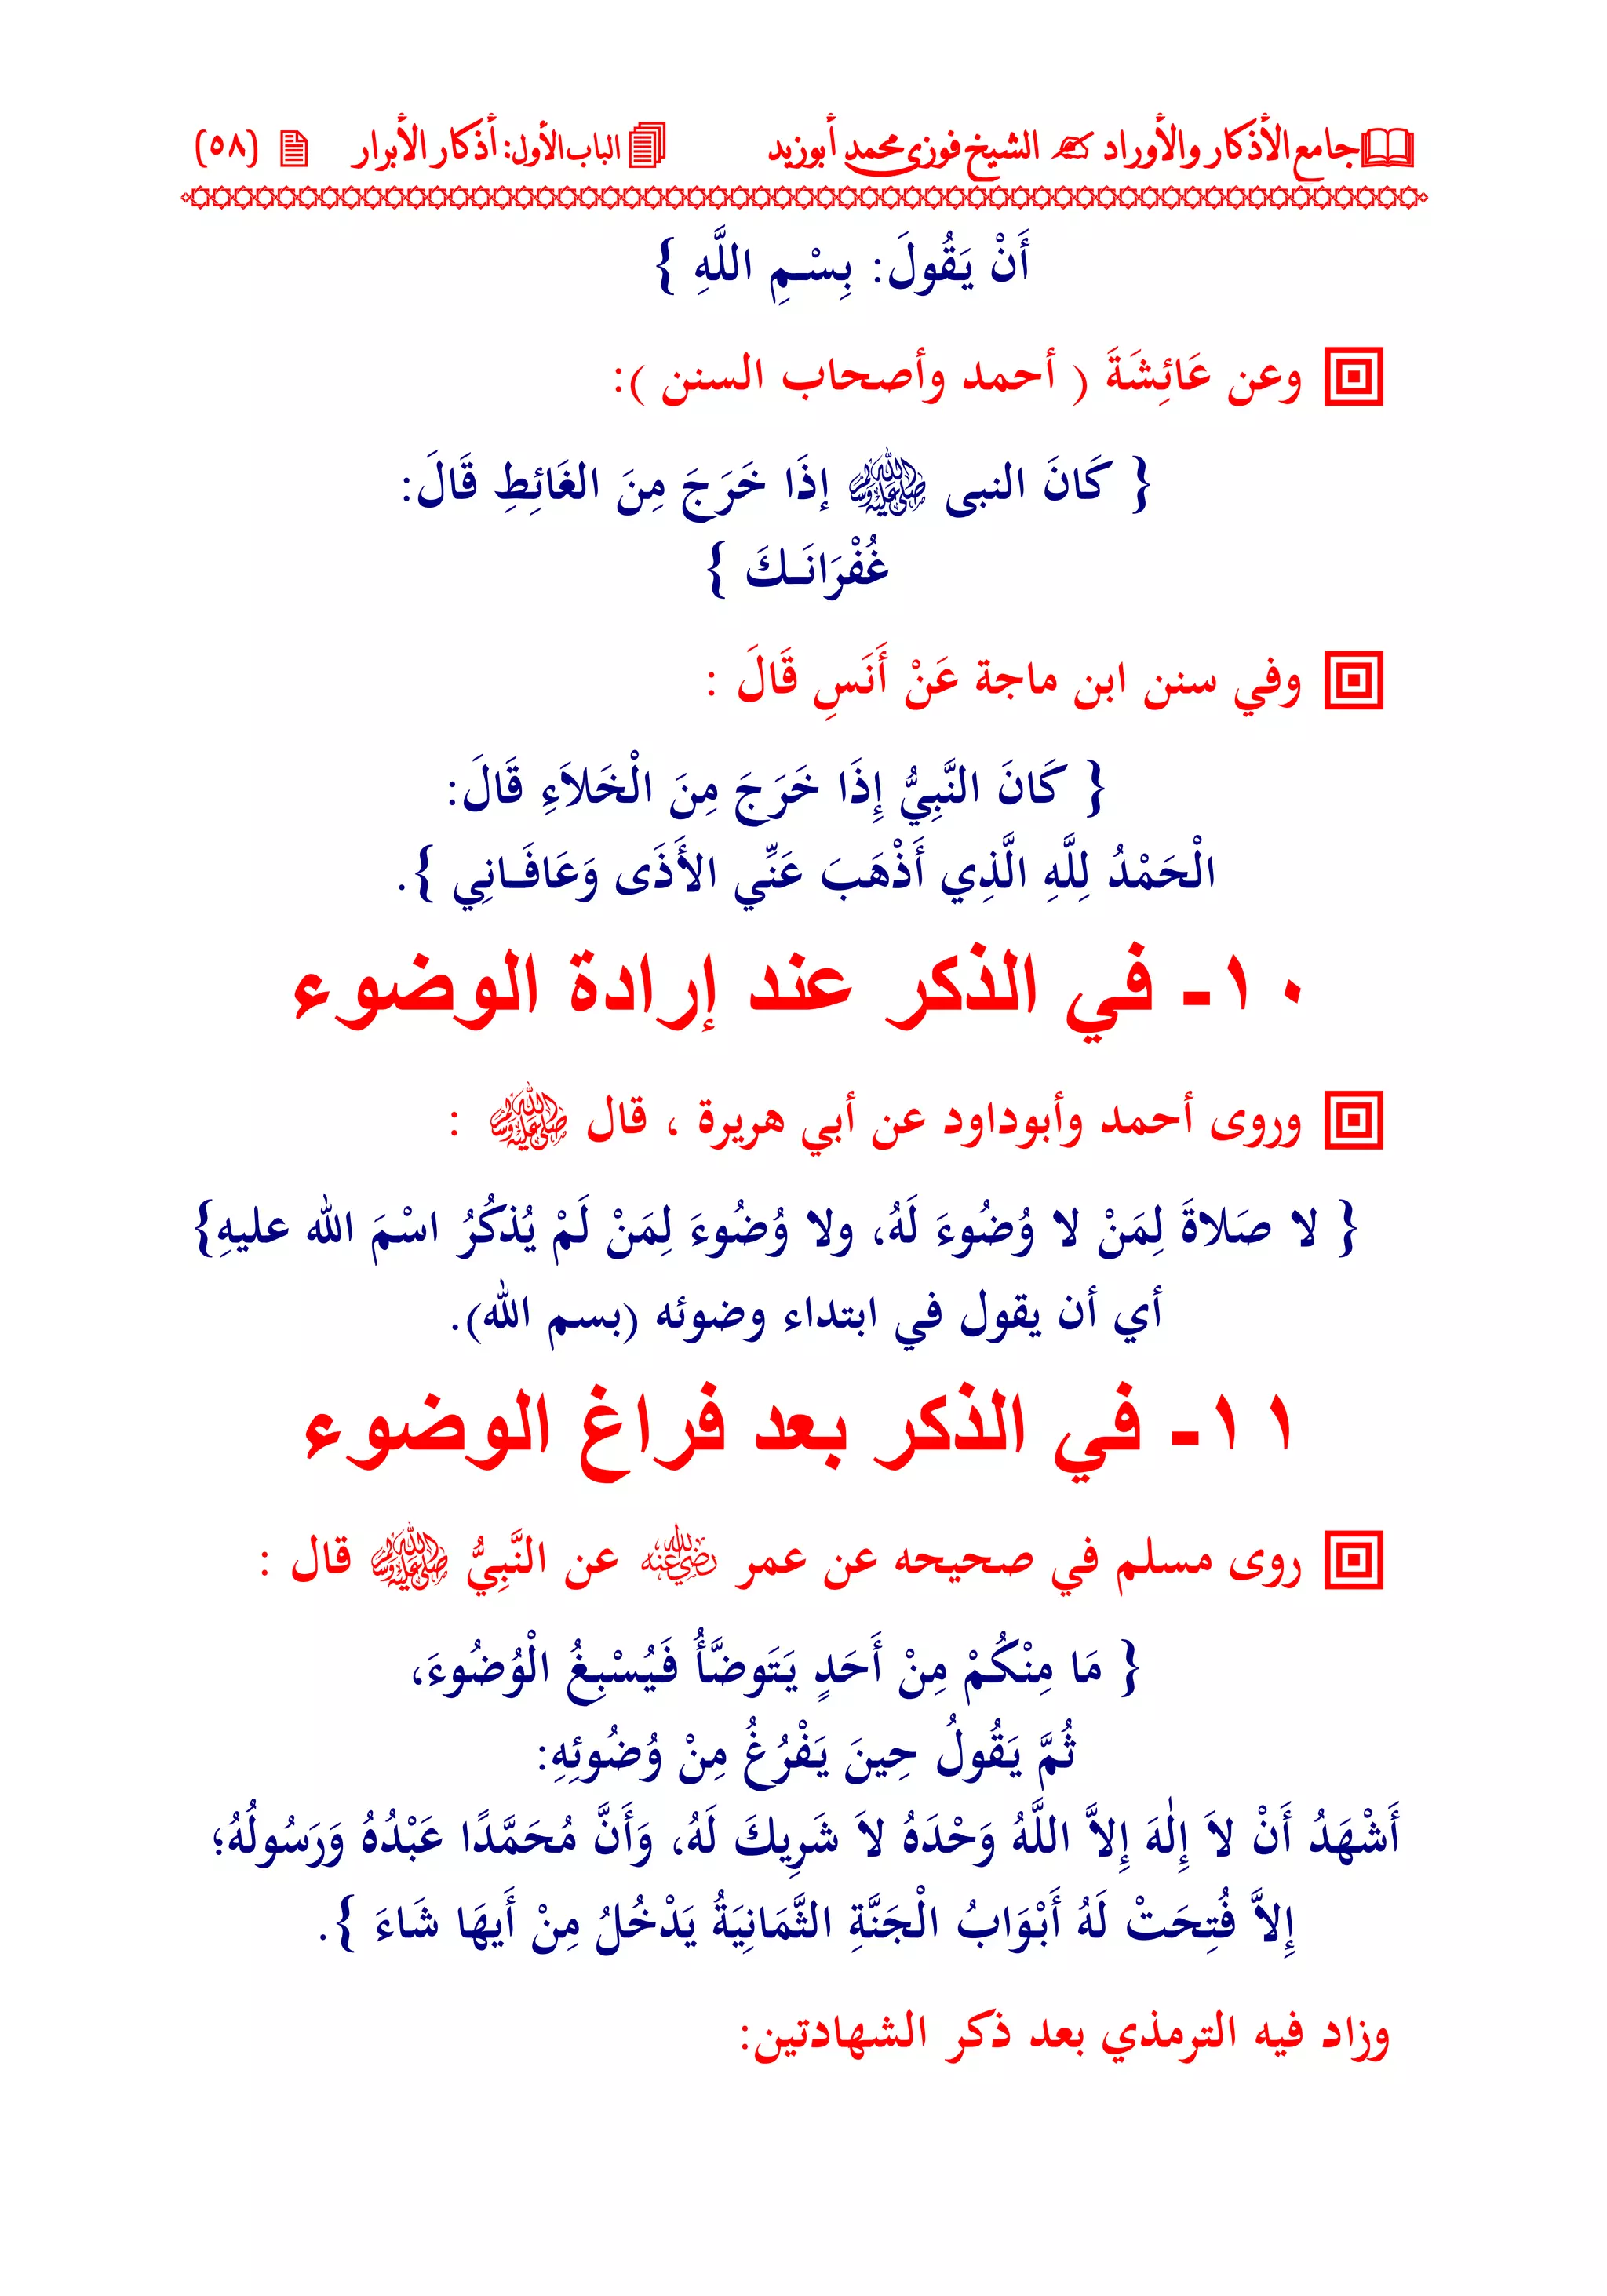 جامع الأذكار والأوراد الشيخ فوزى محمد أبوزيد الباب الأول: أذكار الأبرار (٥٨)
أَنْ يَقُولَ: بِسْـمِ اللَّهِ }
وعن عَائِشَةَ ( أحمد وأصحاب السنن ):
{ كَانَ النبى ﷺ إذَا خَرَجَ مِنَ الغَائِطِ قَالَ:
غُفْرَانَـكَ }
وفي سنن ابن ماجة عَنْ أَنَسِ قَالَ :
{ كَانَ النَّبِيُّ إِذَا خَرَجَ مِنَ الْخَلاَءِ قَالَ:
الْحَمْدُ لِلَّهِ الَّذِي أَذْهَبَ عَنِّي الأَذَى وَعَافَـانِي }.
١٠- في الذكر عند إرادة الوضوء
وروى أحمد وأبوداود عن أبي هريرة ، قال ﷺ :
{ لا صَلاةَ لِمَنْ لا وُضُوءَ لَهُ، ولا وُضُوءَ لِمَنْ لَمْ يُذكُرُ اسْمَ الله عليهِ}
أي أن يقول في ابتداء وضوئه (بسم الله).
١١- في الذكر بعد فراغ الوضوء
روى مسلم في صحيحه عن عمر رضي الله عنه عن النَّبِيُّ ﷺ قال :
{ مَا مِنْكُمْ مِنْ أَحَدٍ يَتَوضَّأُ فَيُسْبِغُ الْوُضُوءَ،
ثُمَّ يَقُولُ حِينَ يَفْرُغُ مِنْ وُضُوئِهِ:
أَشْهَدُ أَنْ لاَ إِلٰهَ إِلاَّ اللَّهُ وَحْدَهُ لاَ شَرِيكَ لَهُ، وَأَنَّ مُحَمَّدًا عَبْدُهُ وَرَسُولُهُ؛
إِلاَّ فُتِحَتْ لَهُ أَبْوَابُ الْجَنَّةِ الثَّمَانِيَةُ يَدْخُلُ مِنْ أَيهَا شَاءَ }.
وزاد فيه الترمذي بعد ذكر الشهادتين: